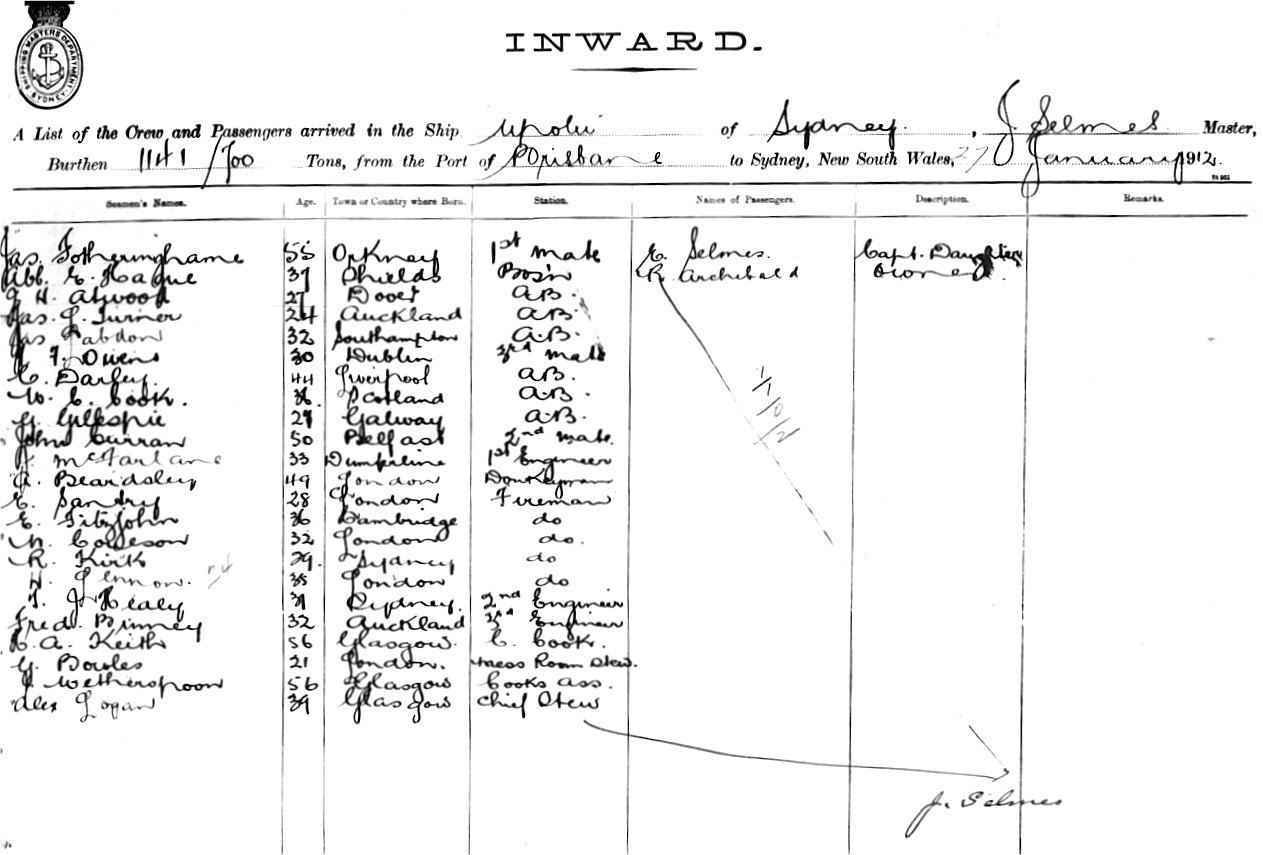 SHIPPING MASTERS DEPARTMENT SYDNEY
INWARD.
A List of the Crew and Passengers arrived in the Ship Upolu of Sydney, J. Selmes Master,
Burthen 1141/700 Tons, from the Port of Brisbane to Sydney, New South Wales, 27 January 1912.
Seamen's Names. Age. Town or Country where Born. Station. Names of Passengers. Description. Remarks.
Jas. Fotheringhame 55 Orkney 1st Mate E. Selmes. Capt. Daughter
Abb. E. Hague 37 Shields Bosn R Archibald Owner
J. H. Atwood 27 Dover A.B.
Jas. J. Turner 24 Auckland A.B.
Jas 32 Southampton A.B.
T. Owens 30 Dublin 3rd Mate
C. Darley. 44 Liverpool A.B.
W. C. Cook. Scotland A.B.
G. Gillespie 27 Galway A.B.
John Curran 50 Belfast 2nd Mate.
J. McFarlane 33 1st Engineer
A. Beardsley 49 London Donkeyman
E. Santry 28 London Fireman
E. Fitzjohn 36 Cambridge do
N. 32 London do.
R. Kirk 29. Sydney do
H. Lennow. 35 London do
T. J. Healy 31 Sydney. 2nd Engineer
Fred. Binney 32 Auckland 3rd Engineer
C. A. Keith 56 Glasgow. C. Cook.
G. Bowles 21 London. Mess Room Stew.
J. Wetherspoon 56 Glasgow Cooks Ass.
Alex Logan 39 Glasgow Chief Stew
J. Selmes